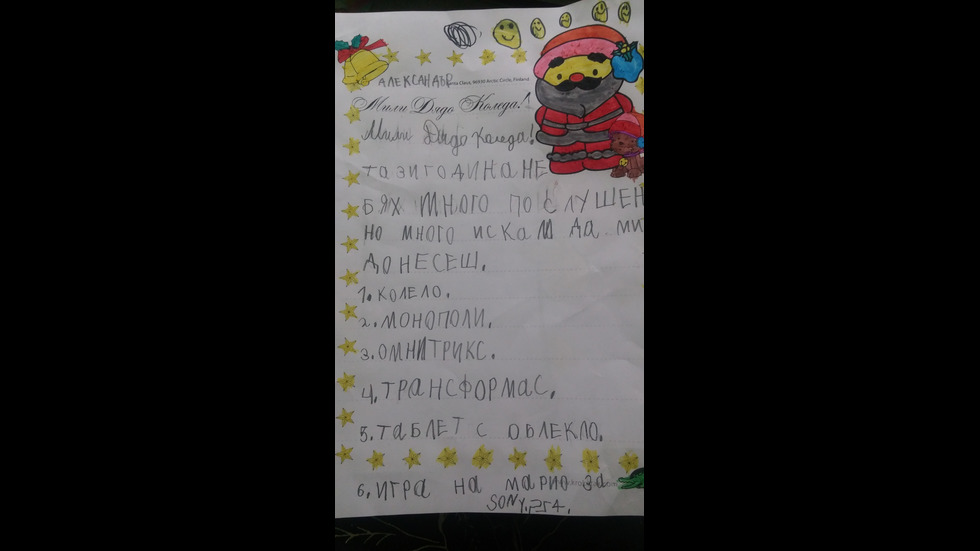 АЛЕКСАНДЪР
Santa Claus, 96930 Arctic Circle, Finland
Мили Дядо Коледа!
Мили Дядо Коледа!
ТАЗИ ГОДИНА НЕ
БЯХ МНОГО ПОСЛУШЕН
НО МНОГО ИСКАМ ДА МИ
ДОНЕСЕШ.
1. КОЛЕЛО.
2. МОНОПОЛИ.
3. ОМНИТРИКС.
4. ТРАНСФОРМАС.
5. ТАБЛЕТ С ОБЛЕКЛО.
6. ИГРА НА МАРИО ЗА
SONY.PS4.